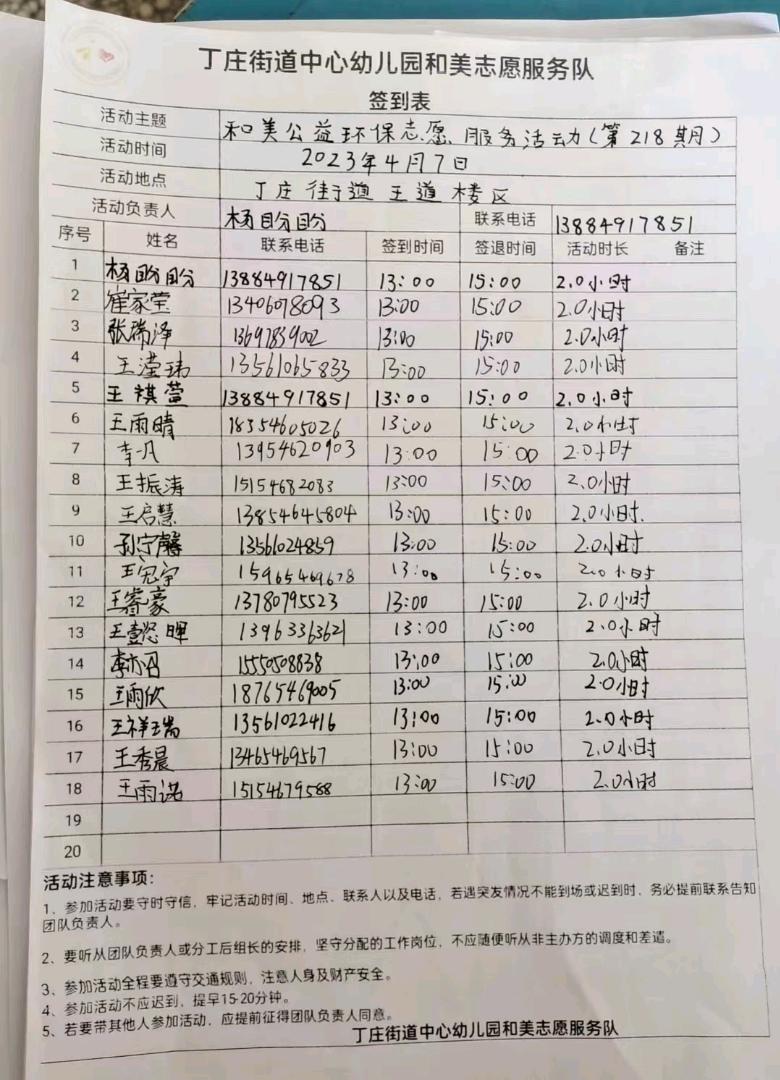 丁庄街道中心幼儿园和美志愿服务队
签到表
活动主题 和美公益环保志愿服务活动(第218期)
活动时间 2023年4月7日
活动地点 丁庄街道王道楼区
活动负责人 杨盼盼 联系电话 13884917851
序号 姓名 联系电话 签到时间 签退时间 活动时长 备注
1 杨盼盼 13884917851 13:00 15:00 2.0小时
2 崔家莹 13406078093 13:00 15:00 2.0小时
3 张瑞泽 13697839002 13:00 15:00 2.0小时
4 王滢玮 13561065833 13:00 15:00 2.0小时
5 王祺萱 13884917851 13:00 15:00 2.0小时
6 王雨晴 18354605026 13:00 15:00 2.0小时
7 李一凡 13954620903 13:00 15:00 2.0小时
8 王振涛 15154682083 13:00 15:00 2.0小时
9 王启慧 13854645804 13:00 15:00 2.0小时.
10 孙宁馨 13561024859 13:00 15:00 2.0小时
11 王冠宇 15965469678 13:00 15:00 2.0小时
12 王睿豪 13780795523 13:00 15:00 2.0小时
13 13963363621 13:00 15:00 2.0小时
14 15550508838 13:00 15:00 2.0小时
15 王雨欣 18765469005 13:00 15:00 2.0小时
16 王祥瑞 13561022416 13:00 15:00 2.0小时
17 王秀晨 13465469567 13:00 15:00 2.0小时
18 王雨诺 15154679588 13:00 15:00 2.0小时
19
20
活动注意事项:
1、参加活动要守时守信,牢记活动时间、地点、联系人以及电话,若遇突发情况不能到场或迟到时,务必提前联系告知
团队负责人。
2、要听从团队负责人或分工后组长的安排,坚守分配的工作岗位,不应随便听从非主办方的调度和差遣。
3、参加活动全程要遵守交通规则,注意人身及财产安全。
4、参加活动不应迟到,提早15-20分钟。
5、若要带其他人参加活动,应提前征得团队负责人同意。
丁庄街道中心幼儿园和美志愿服务队